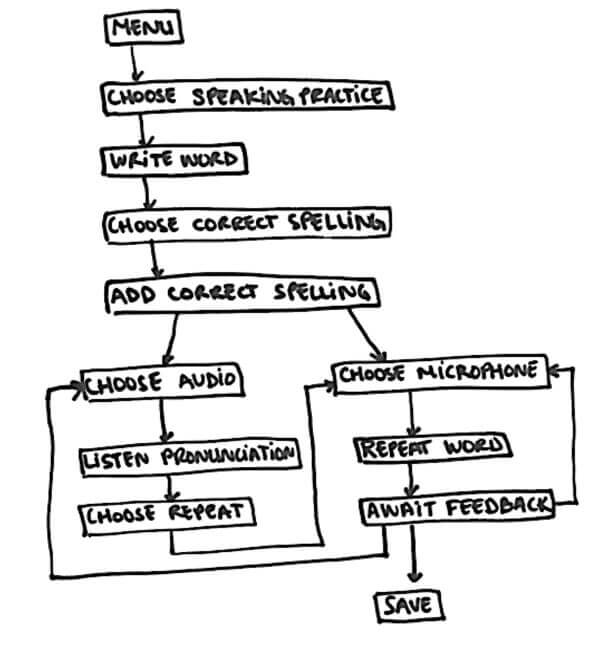 MENU
CHOOSE SPEAKING PRACTICE
WRITE WORD
CHOOSE CORRECT SPELLING
ADD CORRECT SPELLING
CHOOSE AUDIO
LISTEN PRONUNCIATION
CHOOSE REPEAT
CHOOSE MICROPHONE
REPEAT WORD
AWAIT FEEDBACK
SAVE